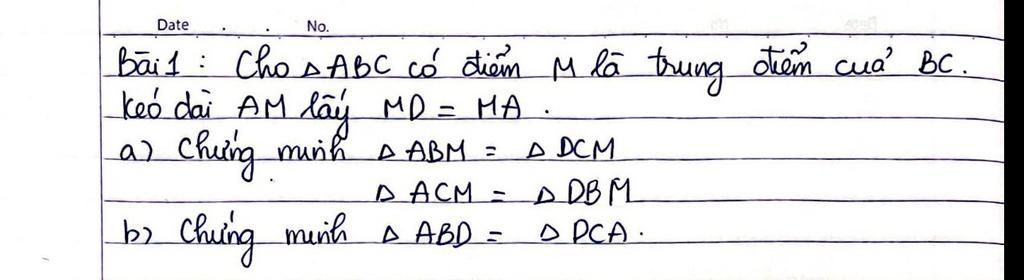 Date . . No.
Bài 1 : Cho △ ABC có điểm M là trung điểm của BC.
Kéo dài AM lấy MD = MA .
a) Chứng minh △ ABM = △ DCM
△ ACM = △ DBM
b) Chứng minh △ ABD = △ DCA .